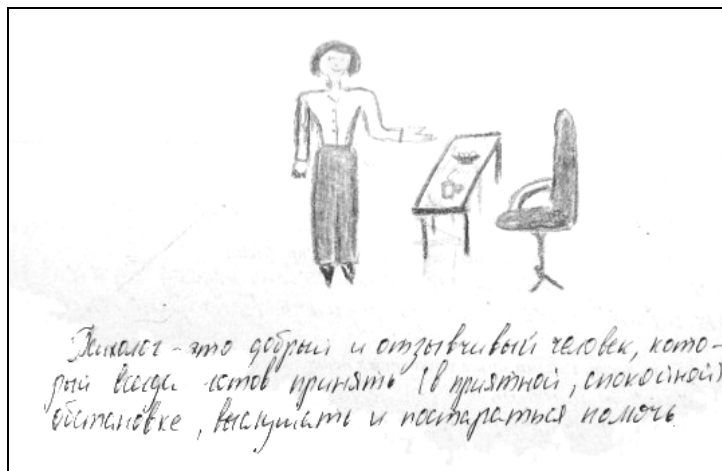 Психолог - это добрый и отзывчивый человек, кото-
рый всегда готов принять (в приятной, спокойной)
обстановке, выслушать и постараться помочь.